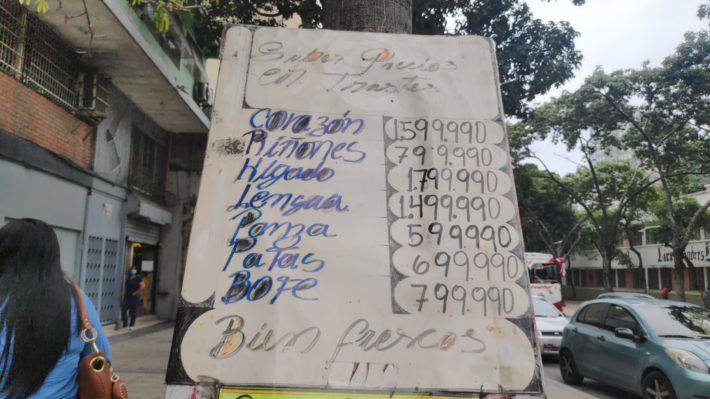 Super Precios
en
Corazón 1.599.990
Riñones 799.990
Hígado 1.799.990
Lengua 1.499.990
Panza 599.990
Patas 699.990
BOFE 799.990
Bien frescos